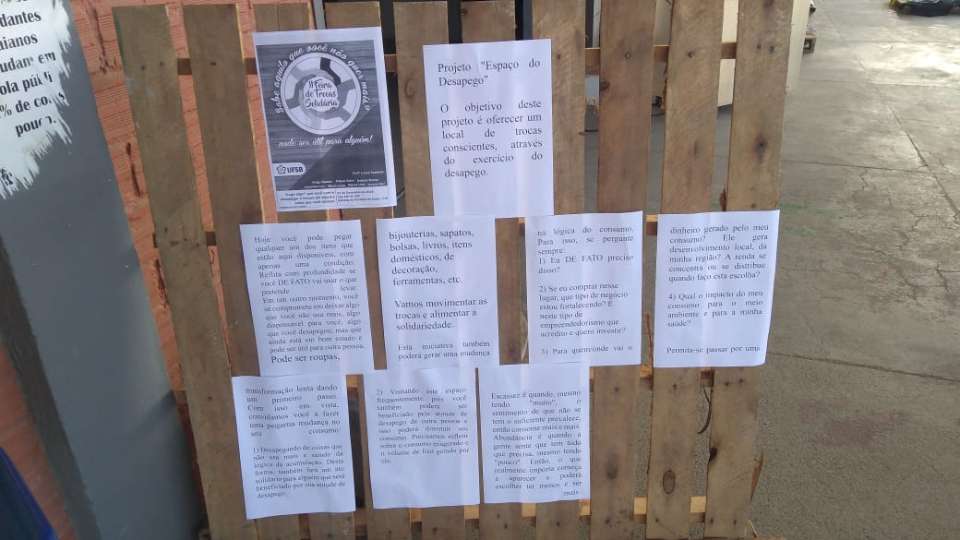 dantes
ianos
udam em
ola públi
% de co
pouc
sabe aquilo que você não quer mais
II Feira
de Trocas
Solidária
pode ser útil para alguém!
UFSB
Projeto "Espaço do
Desapego"
O objetivo deste
projeto é oferecer um
local de trocas
conscientes, através
do exercício do
desapego.
Hoje você pode pegar
qualquer um dos itens que
estão aqui disponíveis, com
apenas uma condição:
Reflita com profundidade se
você DE FATO vai usar o que
pretende levar.
Em um outro momento, você
se compromete em deixar algo
que você não usa mais, algo
dispensável para você, algo
que você desapegou, mas que
ainda está em bom estado e
pode ser útil para outra pessoa.
Pode ser roupas,
bijouterias, sapatos,
bolsas, livros, itens
domésticos, de
decoração,
ferramentas, etc.
Vamos movimentar as
trocas e alimentar a
solidariedade.
Esta iniciativa também
poderá gerar uma mudança
na lógica do consumo.
Para isso, se pergunte
sempre:
1) Eu DE FATO preciso
disso?
2) Se eu comprar nesse
lugar, que tipo de negócio
estou fortalecendo? É
neste tipo de
empreendedorismo que
acredito e quero investir?
3) Para quem/onde vai o
dinheiro gerado pelo meu
consumo? Ele gera
desenvolvimento local, da
minha região? A renda se
concentra ou se distribue
quando faço esta escolha?
4) Qual o impacto do meu
consumo para o meio
ambiente e para a minha
saúde?
Permita-se passar por uma
transformação lenta dando
um primeiro passo.
Com isso em vista,
convidamos você a fazer
uma pequena mudança no
seu consumo:
1) Desapegando de coisas que
não usa mais e saindo da
lógica de acumulação. Desta
forma, também fará um ato
solidário para alguém que será
beneficiado por sua atitude de
desapego.
2) Visitando este espaço
frequentemente, pois você
também poderá ser
beneficiado pela atitude de
desapego de outra pessoa e
isso poderá diminuir seu
consumo. Precisamos refletir
sobre o consumo exagerado e
o volume de lixo gerado por
ele.
Escassez é quando, mesmo
tendo "muito", o
sentimento de que não se
tem o suficiente prevalece,
então consome mais e mais.
Abundância é quando a
gente sente que tem tudo
que precisa, mesmo tendo
"pouco". Então, o que
realmente importa começa
a aparecer e poderá
escolher ter menos e ser
mais.